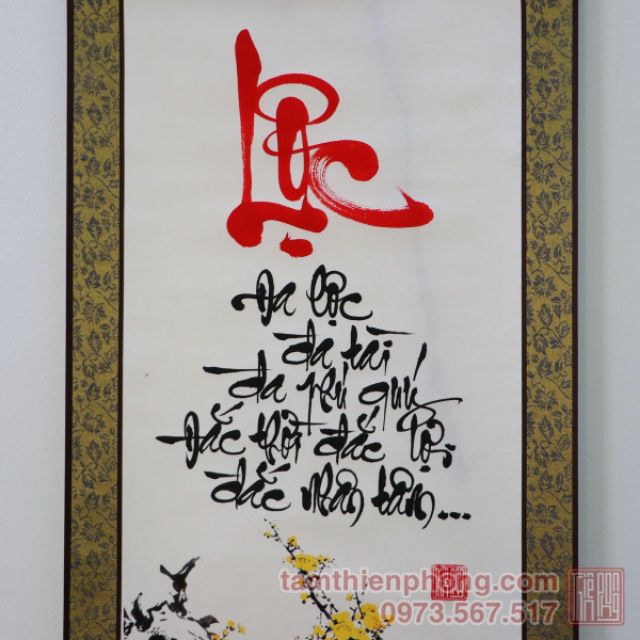 Lộc
Đa lộc
đa tài
đa phú quý
Đắc thời đắc lợi
đắc nhân tâm...
tamthienphong.com
0973.567.517